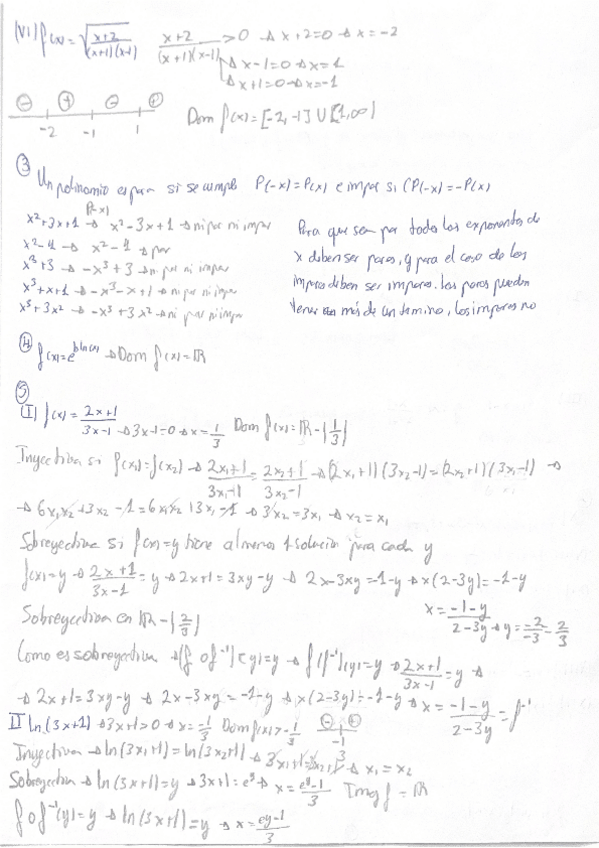 (VI) f(x)=√((x+2)/((x+1)(x-1))) (x+2)/((x+1)(x-1)) >0 → x+2=0 → x=-2
→ x-1=0 → x=1
→ x+1=0 → x=-1
⊖ ⊕ ⊖ ⊕
-2 -1 1 Dom f(x)=[-2,-1] U [1,∞)
③ Un polinomio es par si se cumple P(-x)=P(x) e impar si P(-x)=-P(x)
P(-x)
x²+3x+1 → x²-3x+1 → ni par ni impar
x²-4 → x²-4 → par
x³+3 → -x³+3 → ni par ni impar
x³+x+1 → -x³-x+1 → ni par ni impar
x⁵+3x² → -x⁵+3x² → ni par ni impar
Para que sea par todos los exponentes de
x deben ser pares, y para el caso de los
impares deben ser impares. Los pares pueden
tener más de un termino, los impares no
④
Dom f(x)=ℝ
⑤
(I) f(x)=(2x+1)/(3x-1) → 3x-1=0 → x=1/3 Dom f(x)=ℝ-{1/3}
Inyectiva si f(x₁)=f(x₂) → (2x₁+1)/(3x₁-1) = (2x₂+1)/(3x₂-1) → (2x₁+1)(3x₂-1)=(2x₂+1)(3x₁-1) →
→ 6x₁x₂+3x₂-1=6x₁x₂+3x₁-1 → 3x₂=3x₁ → x₂=x₁
Sobreyectiva si f(x)=y tiene al menos 1 solución para cada y
f(x)=y → (2x+1)/(3x-1)=y → 2x+1=3xy-y → 2x-3xy=-1-y → x(2-3y)=-1-y
x=(-1-y)/(2-3y) → y=-2/-3=2/3
Sobreyectiva en ℝ-{2/3}
Como es sobreyectiva → (f∘f⁻¹)(y)=y → f(f⁻¹(y))=y → (2x+1)/(3x-1)=y →
→ 2x+1=3xy-y → 2x-3xy=-1-y → x(2-3y)=-1-y → x=(-1-y)/(2-3y)=f⁻¹
II ln(3x+1) → 3x+1>0 → x=-1/3 Dom f(x)>-1/3 ⊖ ⊕
-1/3
Inyectiva → ln(3x₁+1)=ln(3x₂+1) → 3x₁+1=3x₂+1 → x₁=x₂
Sobreyectiva → ln(3x+1)=y → 3x+1=eʸ → x=(eʸ-1)/3 Imag f=ℝ
f∘f⁻¹(y)=y → ln(3x+1)=y → x=(eʸ-1)/3